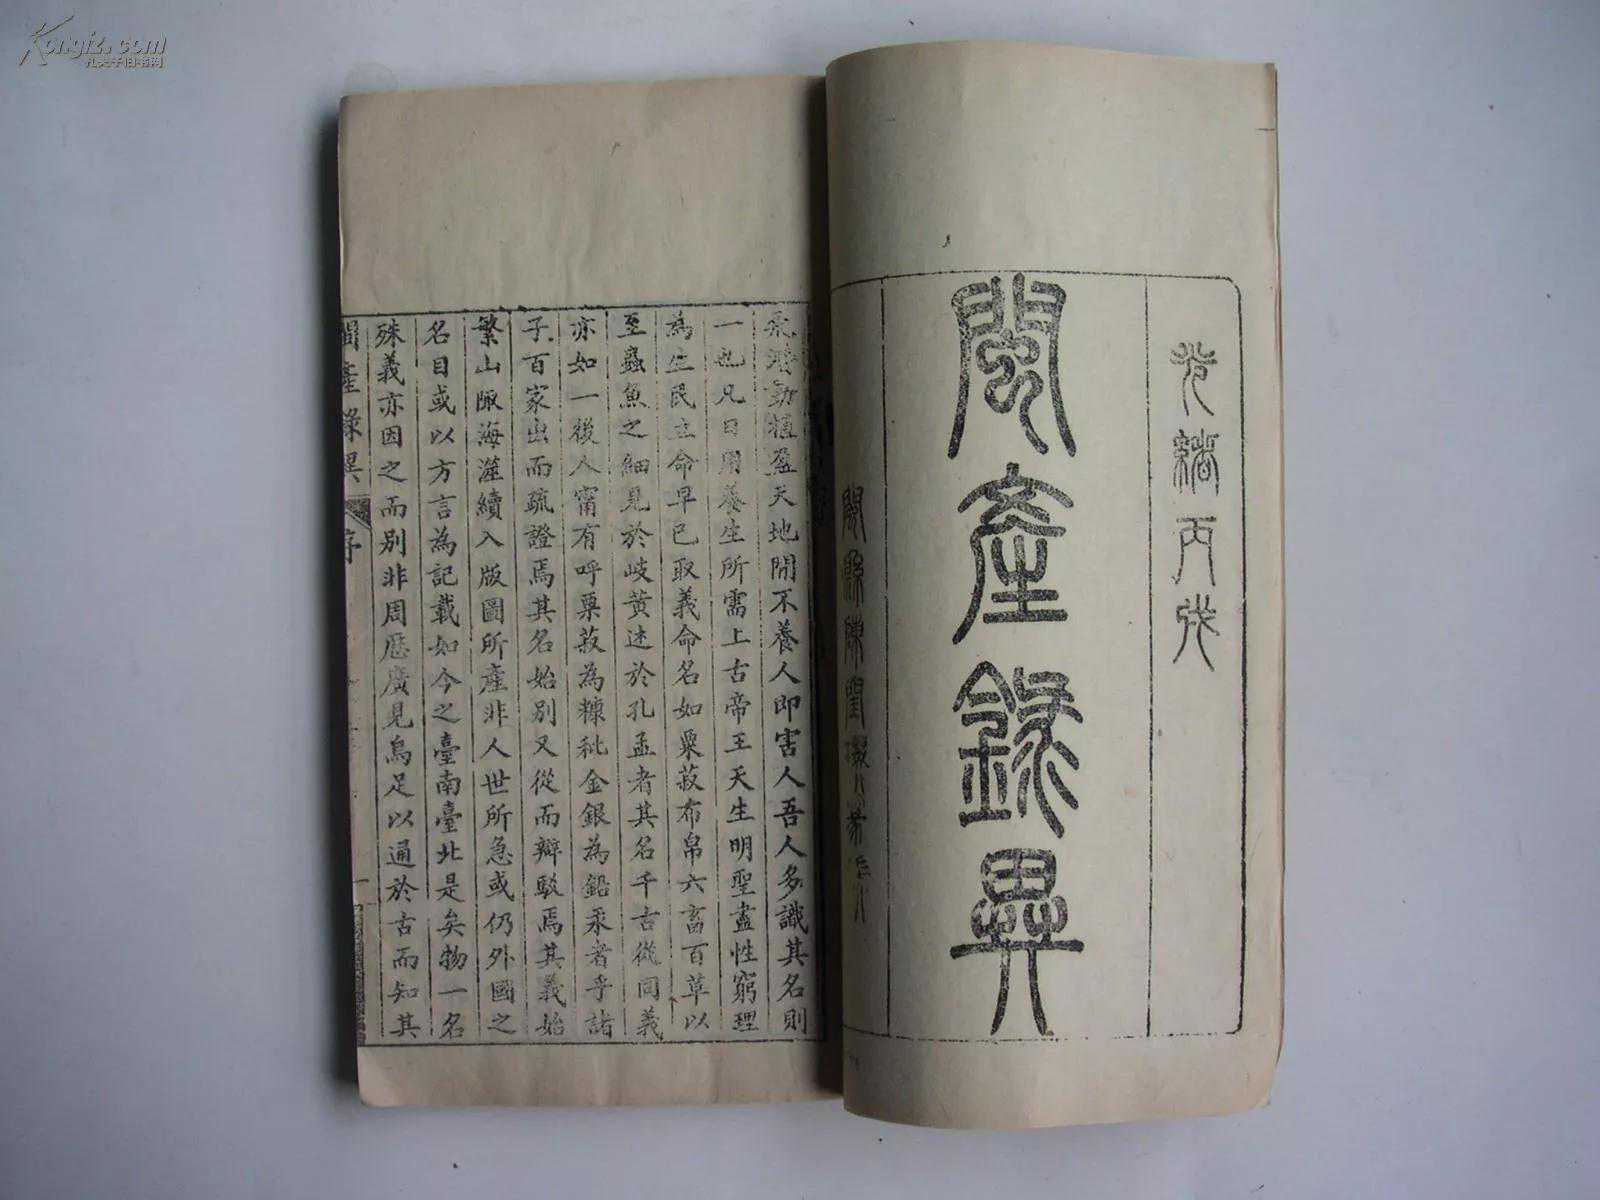 Kongfz.com
孔夫子旧书网
光緒丙戌
閩產錄異
飛潛動植盈天地間不養人即害人吾人多識其名則
一也凡日用養生所需上古帝王天生明聖盡性窮理
為生民立命早已取義命名如粟菽布帛六畜百草以
至蟲魚之細見於岐黃述於孔孟者其名千古從同義
亦如一後人甯有呼粟菽為糠秕金銀為鉛汞者乎諸
子百家出而疏證焉其名始別又從而辯駁焉其義始
繁山陬海澨續入版圖所產非人世所急或仍外國之
名目或以方言為記載如今之臺南臺北是矣物一名
殊義亦因之而別非周歷廣見烏足以通於古而知其
閩產錄異
序
一